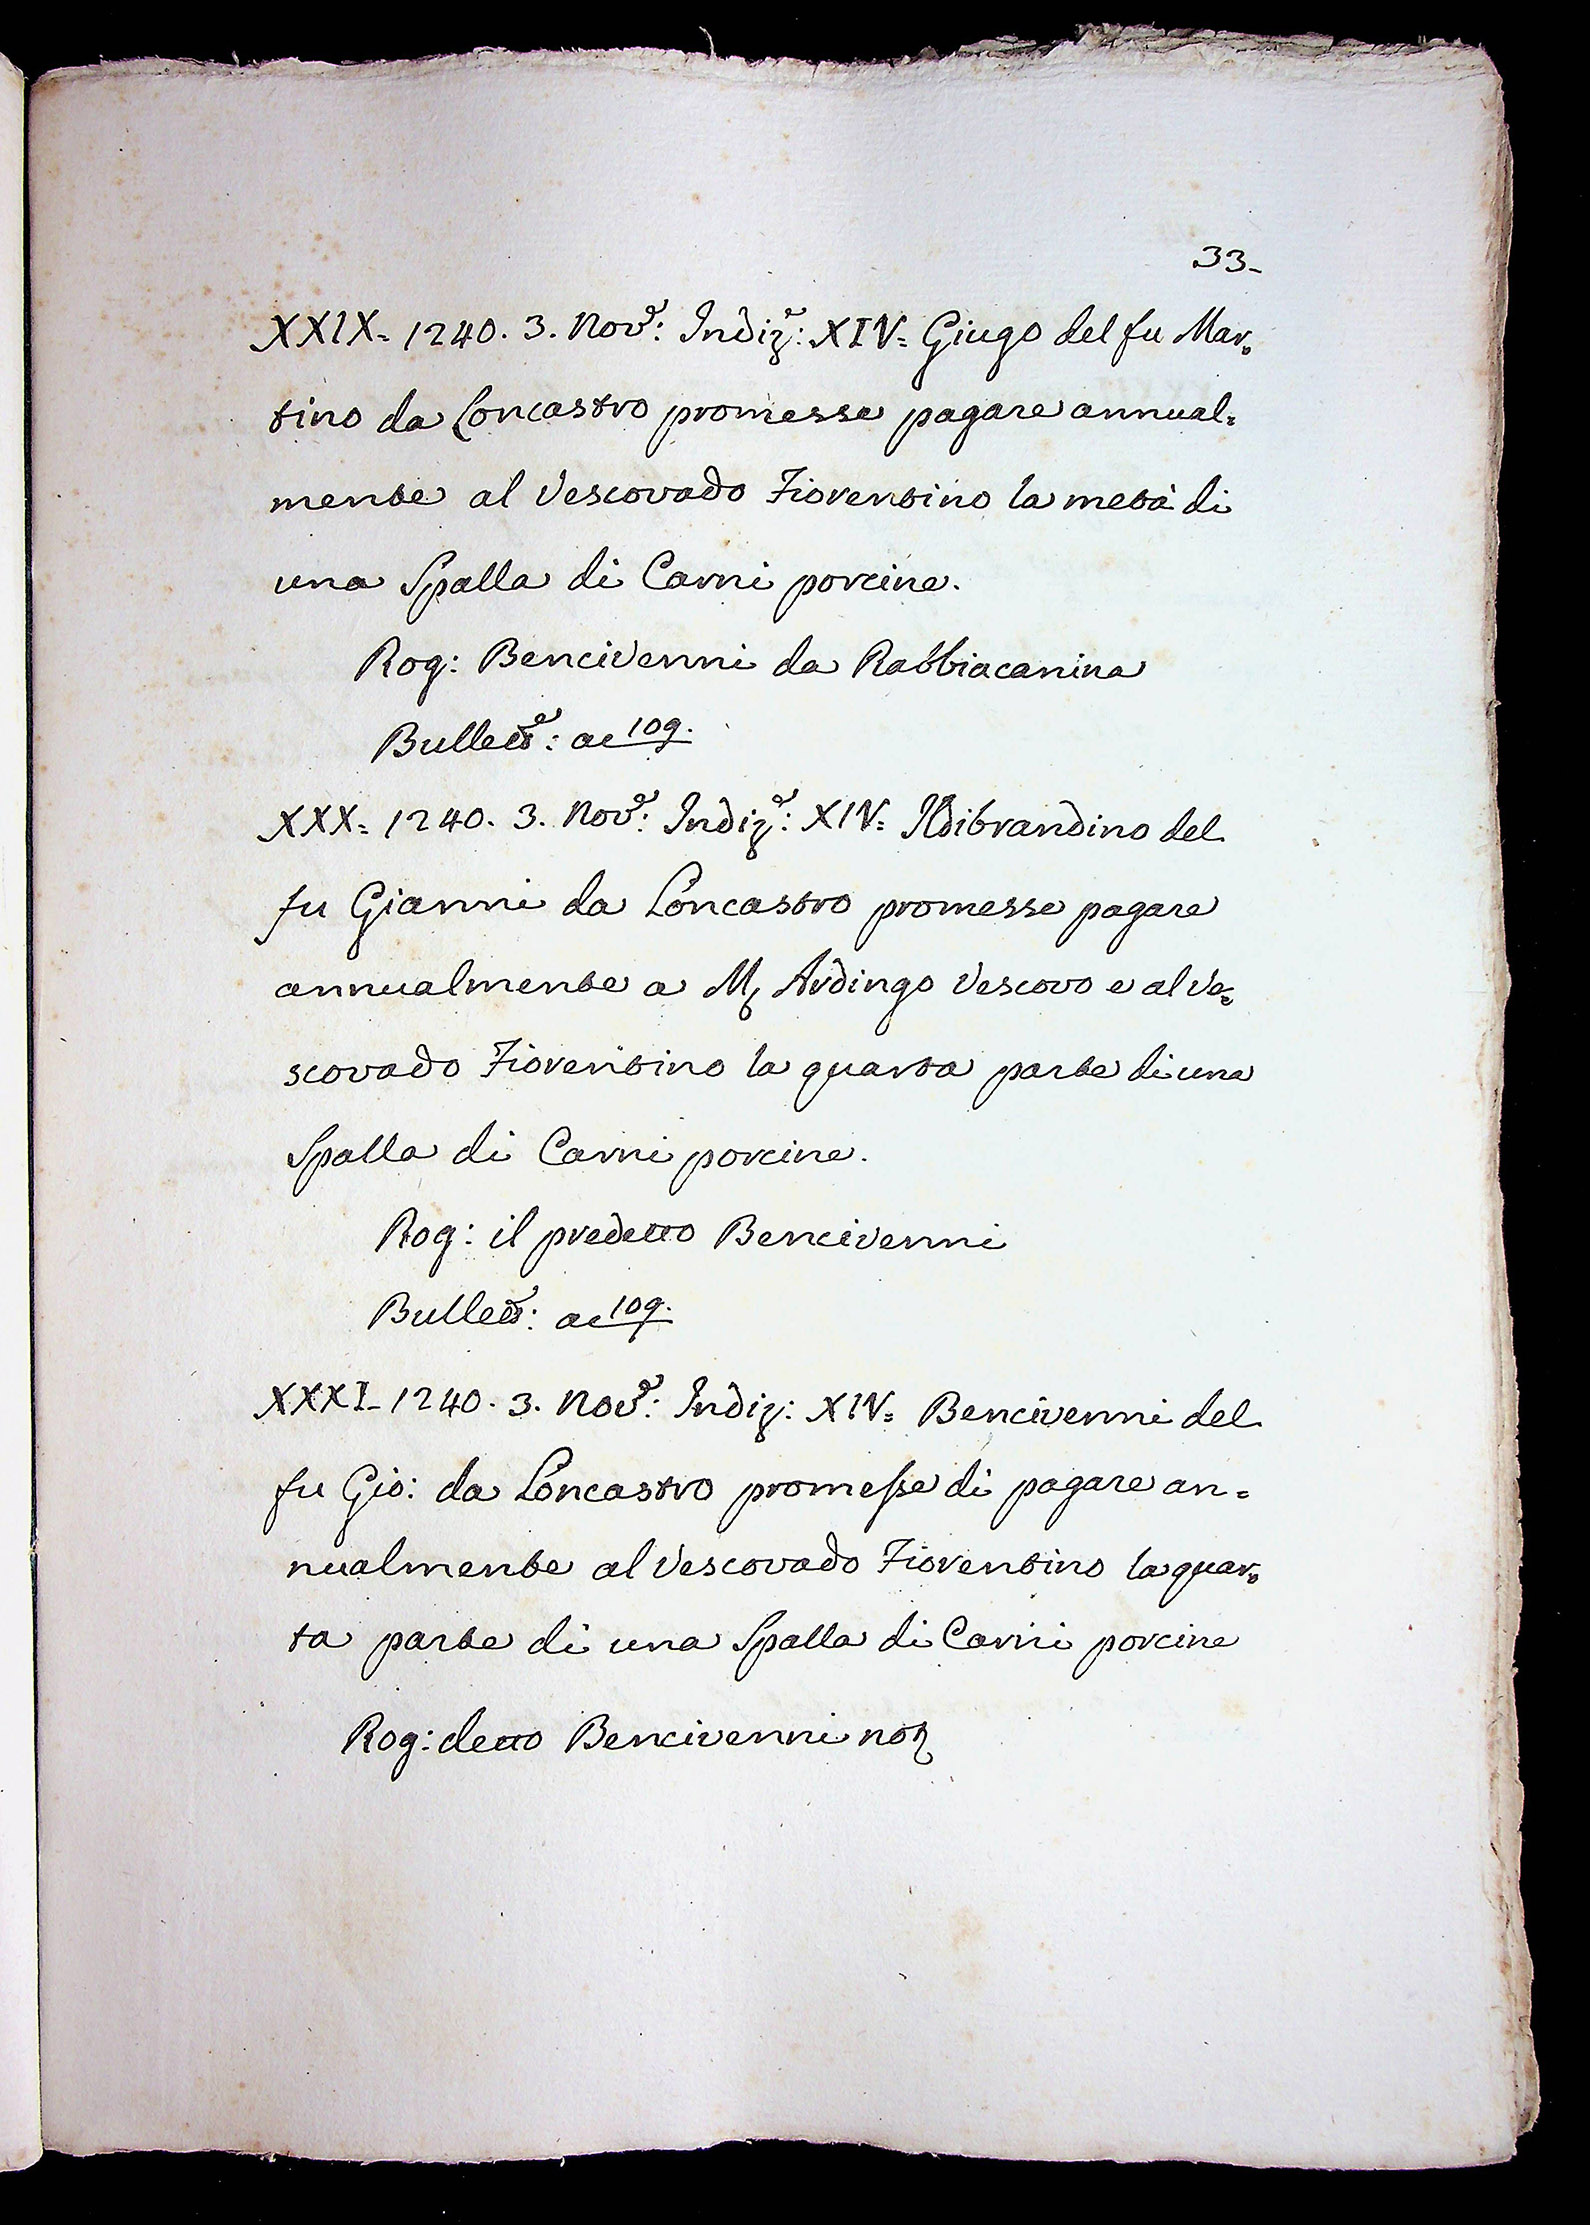 33-
XXIX= 1240. 3. Nov.e: Indiz.e: XIV= Giugo del fu Mar=
tino da Loncastro promesse pagare annual=
mente al Vescovado Fiorentino la metà di
una Spalla di Carni porcine.
Rog: Bencivenni da Rabbiacanina
Bullett.e: ac 109.
XXX= 1240. 3. Nov.e: Indiz.e: XIV= Ildibrandino del
fu Gianni da Loncastro promesse pagare
annualmente a M. Ardingo Vescovo e al Ve=
scovado Fiorentino la quarta parte di una
Spalla di Carni porcine.
Rog: il predetto Bencivenni
Bullett.e: ac 109.
XXXI- 1240. 3. Nov.e: Indiz: XIV= Bencivenni del
fu Gio: da Loncastro promesse di pagare an=
nualmente al Vescovado Fiorentino la quar=
ta parte di una Spalla di Carni porcine
Rog: detto Bencivenni not